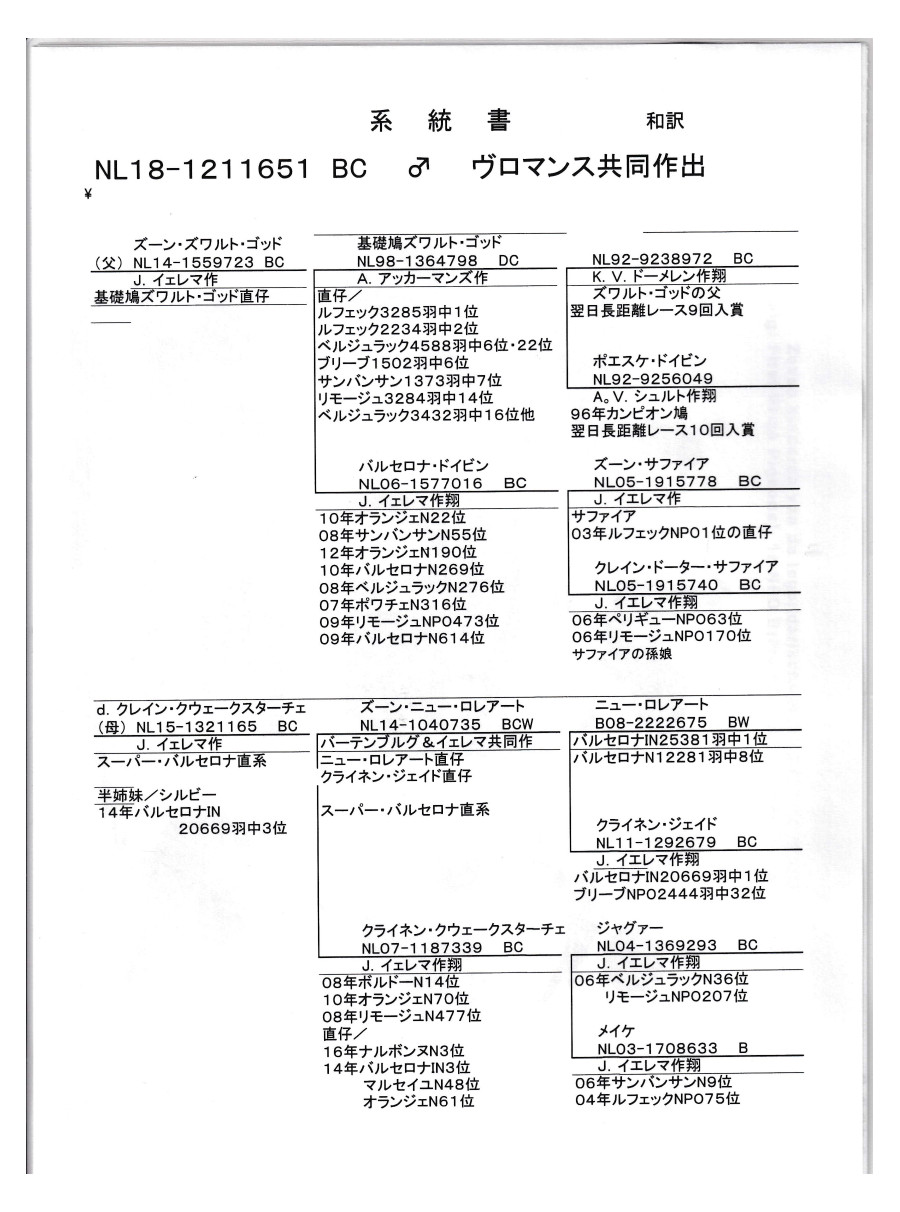 系 統 書 和訳
NL18-1211651 BC ♂ ヴロマンス共同作出
¥
ズーン・ズワルト・ゴッド
(父) NL14-1559723 BC
J. イェレマ作
基礎鳩ズワルト・ゴッド直仔
基礎鳩ズワルト・ゴッド
NL98-1364798 DC
A. アッカーマンズ作
直仔/
ルフェック3285羽中1位
ルフェック2234羽中2位
ベルジュラック4588羽中6位・22位
ブリーブ1502羽中6位
サンバンサン1373羽中7位
リモージュ3284羽中14位
ベルジュラック3432羽中16位他
バルセロナ・ドイビン
NL06-1577016 BC
J. イェレマ作翔
10年オランジェN22位
08年サンバンサンN55位
12年オランジェN190位
10年バルセロナN269位
08年ベルジュラックN276位
07年ポワチェN316位
09年リモージュNPO473位
09年バルセロナN614位
NL92-9238972 BC
K. V. ドーメレン作翔
ズワルト・ゴッドの父
翌日長距離レース9回入賞
ポエスケ・ドイビン
NL92-9256049
A。V. シュルト作翔
96年カンピオン鳩
翌日長距離レース10回入賞
ズーン・サファイア
NL05-1915778 BC
J. イエレマ作
サファイア
03年ルフェックNPO1位の直仔
クレイン・ドーター・サファイア
NL05-1915740 BC
J. イエレマ作翔
06年ペリギューNPO63位
06年リモージュNPO170位
サファイアの孫娘
d. クレイン・クウェークスターチェ
(母) NL15-1321165 BC
J. イェレマ作
スーパー・バルセロナ直系
半姉妹/シルビー
14年バルセロナIN
20669羽中3位
ズーン・ニュー・ロレアート
NL14-1040735 BCW
バーテンブルグ&イェレマ共同作
ニュー・ロレアート直仔
クライネン・ジェイド直仔
スーパー・バルセロナ直系
クライネン・クウェークスターチェ
NL07-1187339 BC
J. イェレマ作翔
08年ボルドーN14位
10年オランジェN70位
08年リモージュN477位
直仔/
16年ナルボンヌN3位
14年バルセロナIN3位
マルセイユN48位
オランジェN61位
ニュー・ロレアート
B08-2222675 BW
バルセロナIN25381羽中1位
バルセロナN12281羽中8位
クライネン・ジェイド
NL11-1292679 BC
J. イエレマ作翔
バルセロナIN20669羽中1位
ブリーブNPO2444羽中32位
ジャグァー
NL04-1369293 BC
J. イエレマ作翔
06年ベルジュラックN36位
リモージュNPO207位
メイケ
NL03-1708633 B
J. イエレマ作翔
06年サンバンサンN9位
04年ルフェックNPO75位